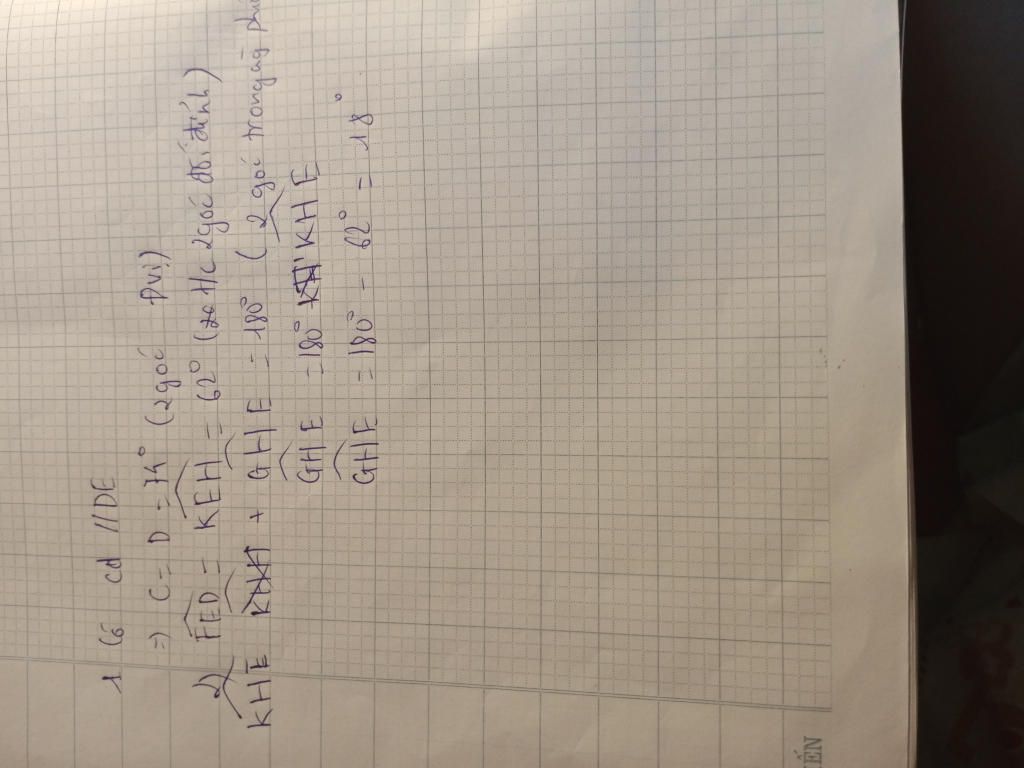 1 Có cd // DE
=> C = D = 74° (2 góc Đvị)
2) FED = KEH = 62° (t/c 2 góc đối đỉnh)
KHE + GHE = 180° (2 góc trong cùng
GHE = 180° KHE
GHE = 180° - 62° = 18°
ẾN